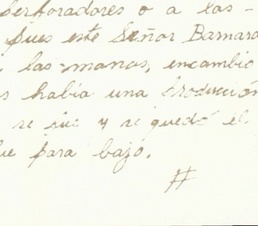 perforadores o a las -
pues este Señor Bamara
las manos, encambio
s había una producción
se fue y se quedó el
ue para bajo.